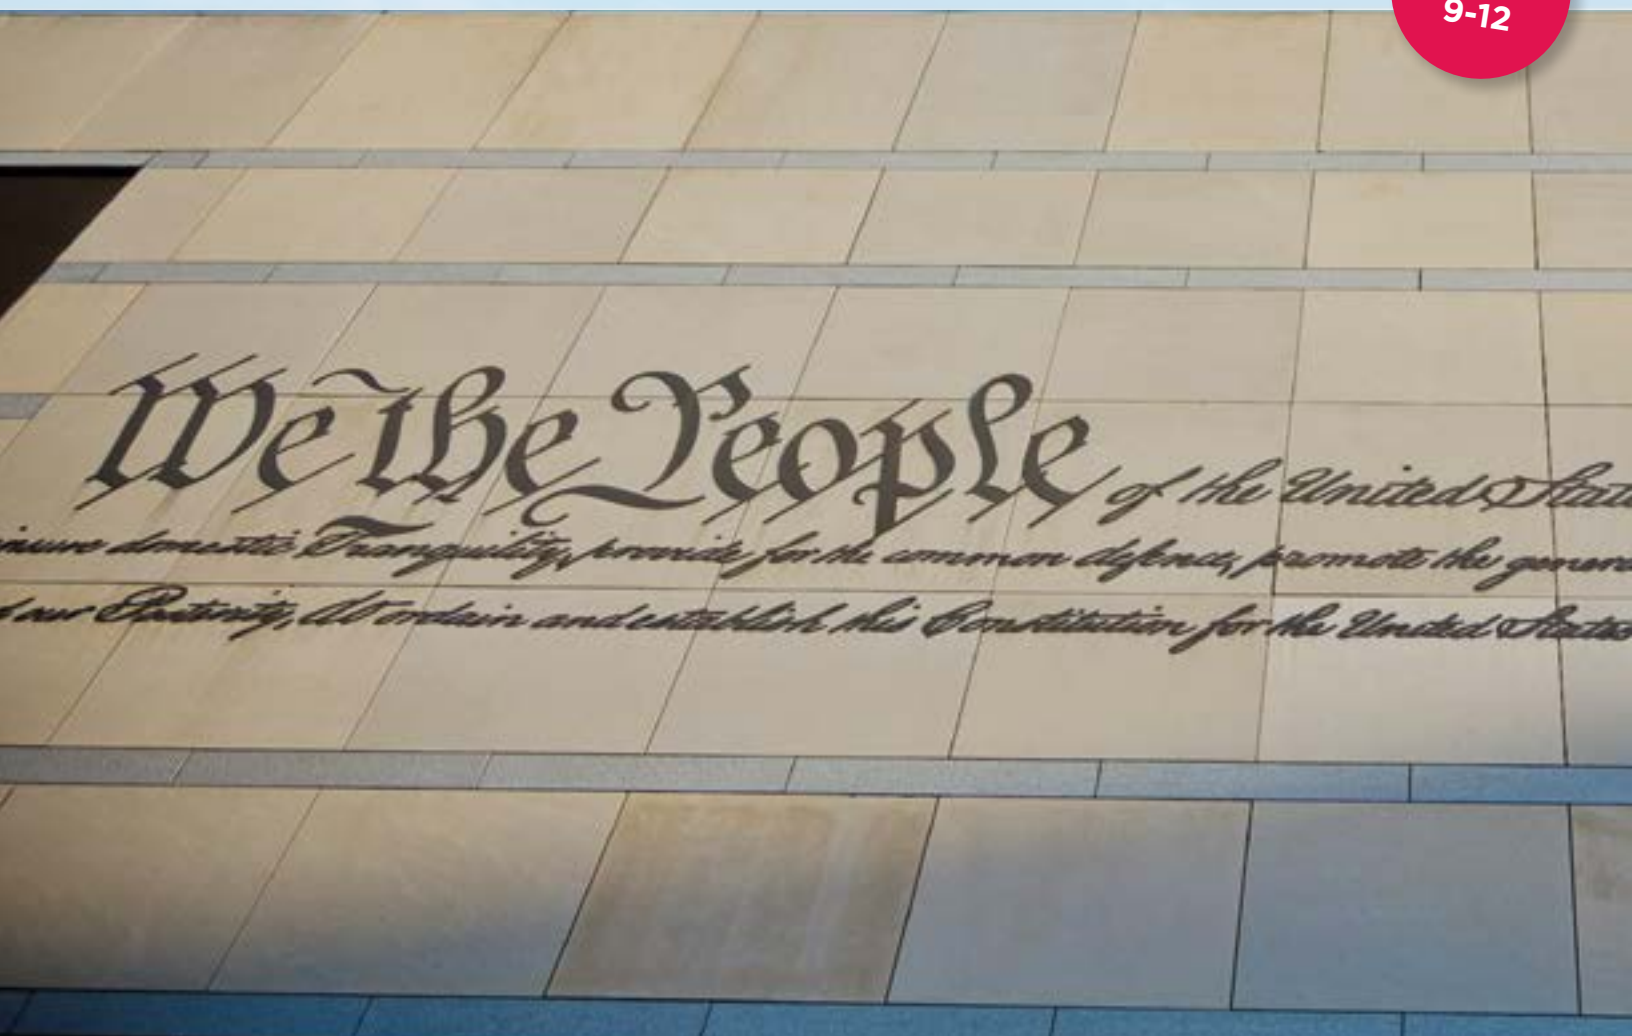 9-12
We the People of the United State
insure domestic Tranquility, provide for the common defence, promote the genera
our Posterity, do ordain and establish this Constitution for the United States